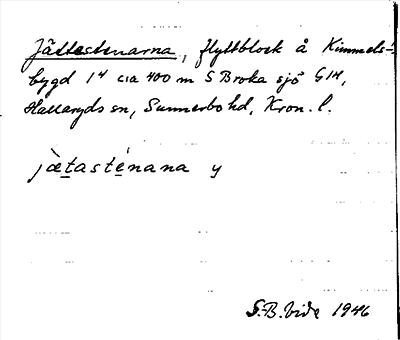 Jättestenarna, flyttblock å Kimmels-
bygd 1⁴ cia 400 m S Broka sjö G 14,
Hallaryds sn, Sunnerbo hd, Kron. l.
jætasténana y
S.B. Vide 1946